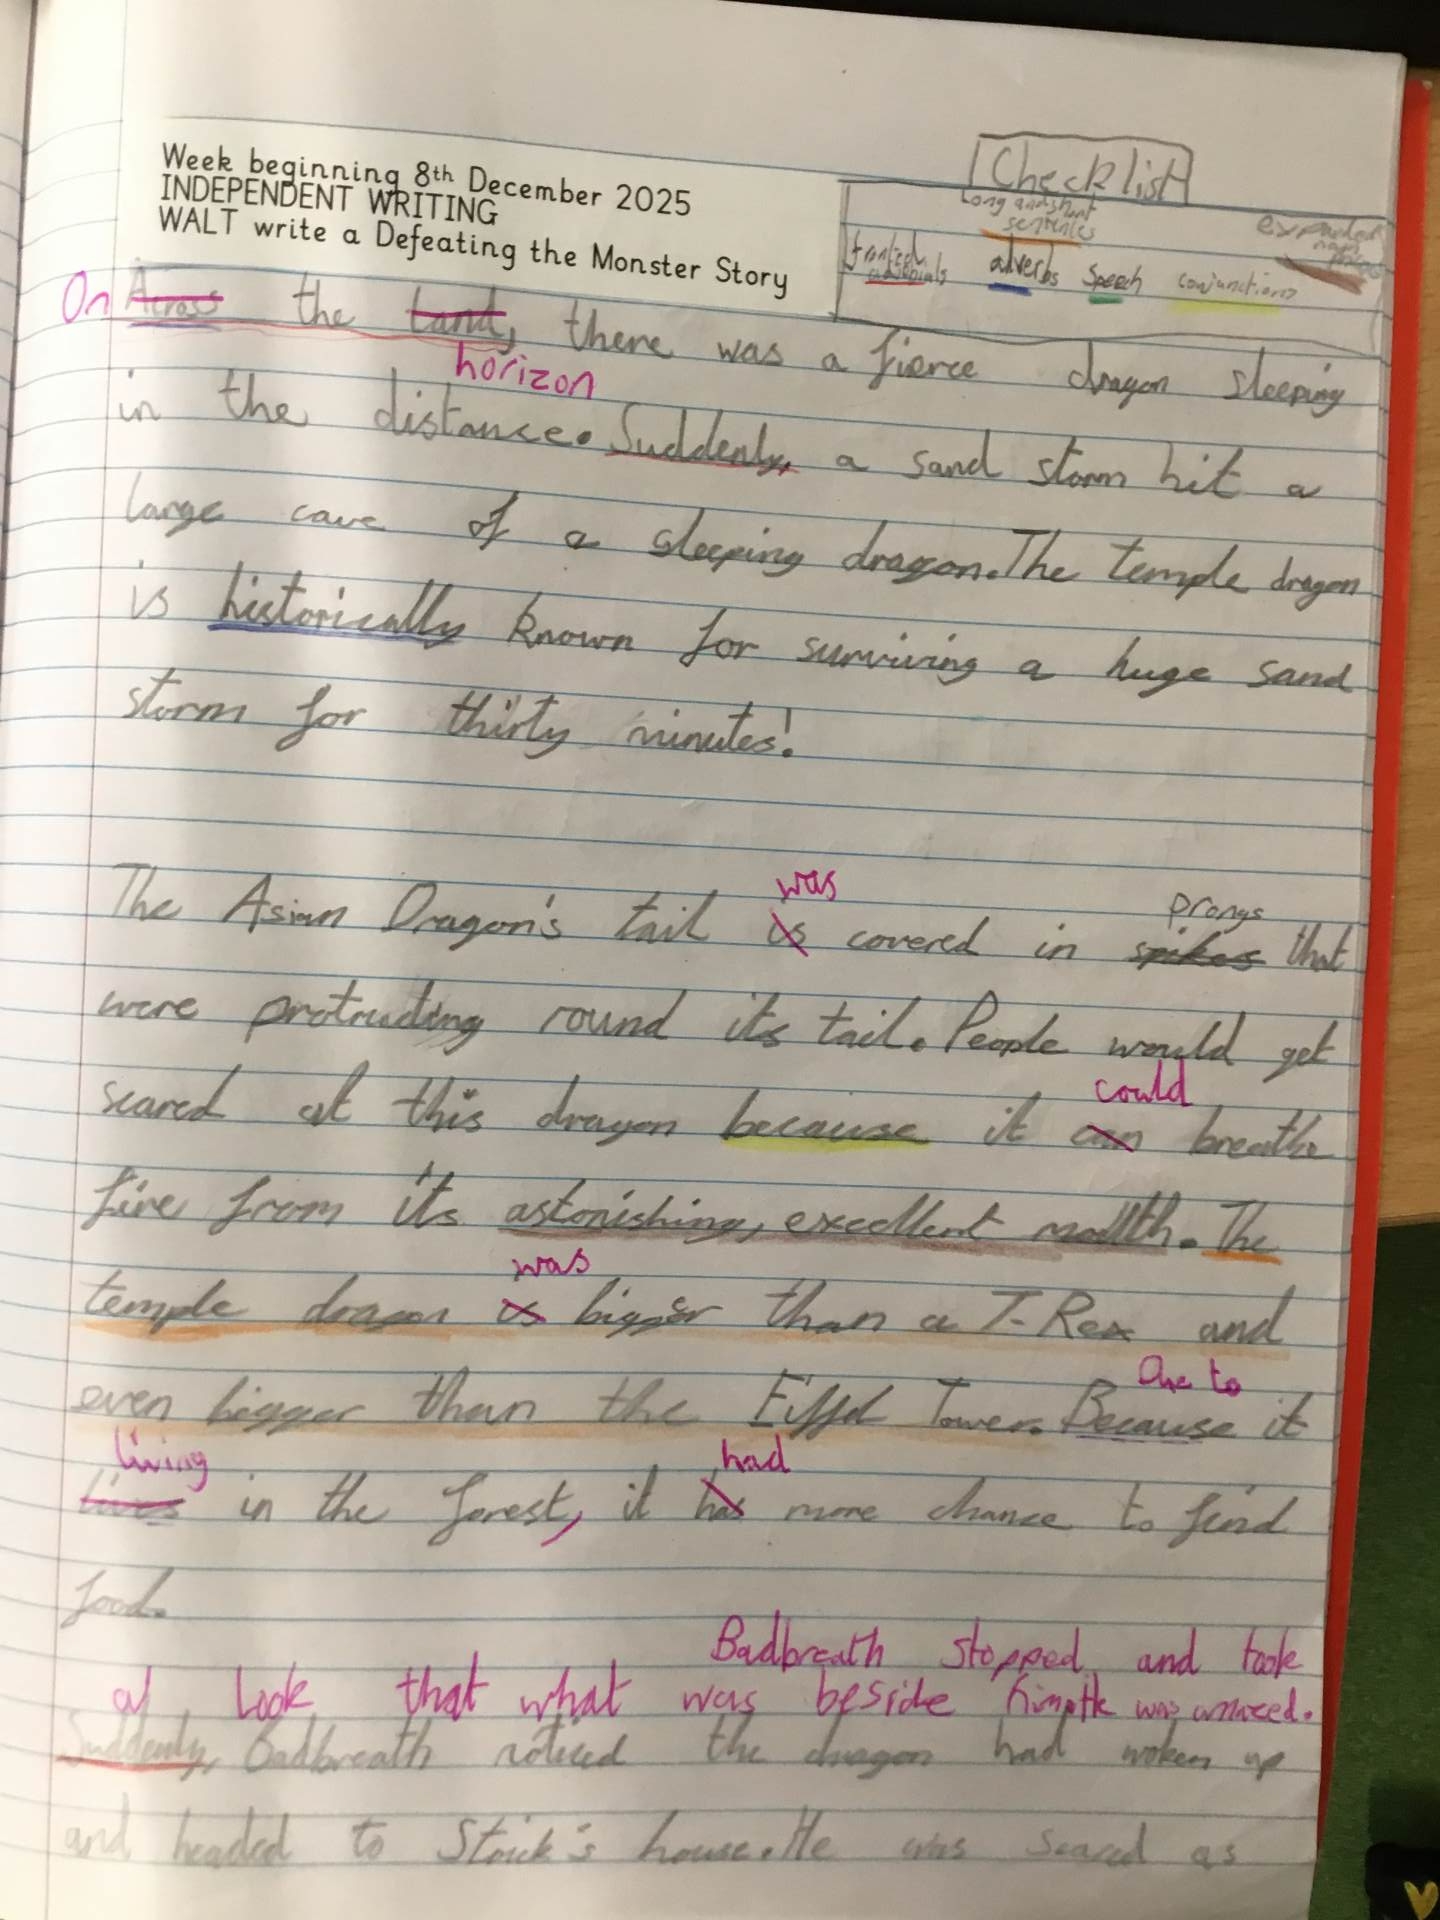 Week beginning 8th December 2025
INDEPENDENT WRITING
WALT write a Defeating the Monster Story
Checklist
Long and short
sentences
expanded
noun
adverbs Speech conjunctions
On Across the land, there was a fierce dragon sleeping
horizon
in the distance. Suddenly, a sand storm hit a
large cave of a sleeping dragon. The temple dragon
is historically known for surviving a huge sand
storm for thirty minutes!
was
prongs
The Asian Dragon's tail is covered in spikes that
were protruding round its tail. People would get
could
scared at this dragon because it can breathe
fire from its astonishing, excellent mouth. The
was
temple dragon is bigger than a T-Rex and
even bigger than the Eiffel Tower. Because it
Due to
living had
lives in the forest, it has more chance to find
food.
Badbreath stopped and took
a look that what was beside him, He was amazed.
Suddenly, Badbreath noticed the dragon had woken up
and headed to Stoick's house. He was scared as